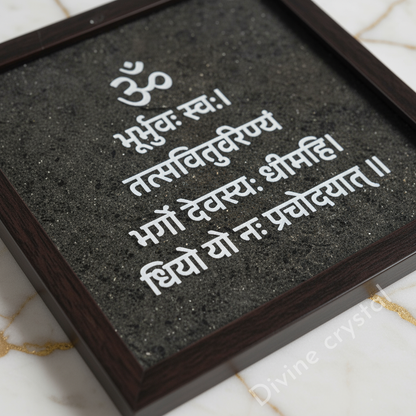 ॐ
भूर्भुवः स्वः।
तत्सवितुवरिण्यं
भर्गो देवस्यः धीमहि।
धियो यो नः प्रचोदयात्॥
Divine crystal